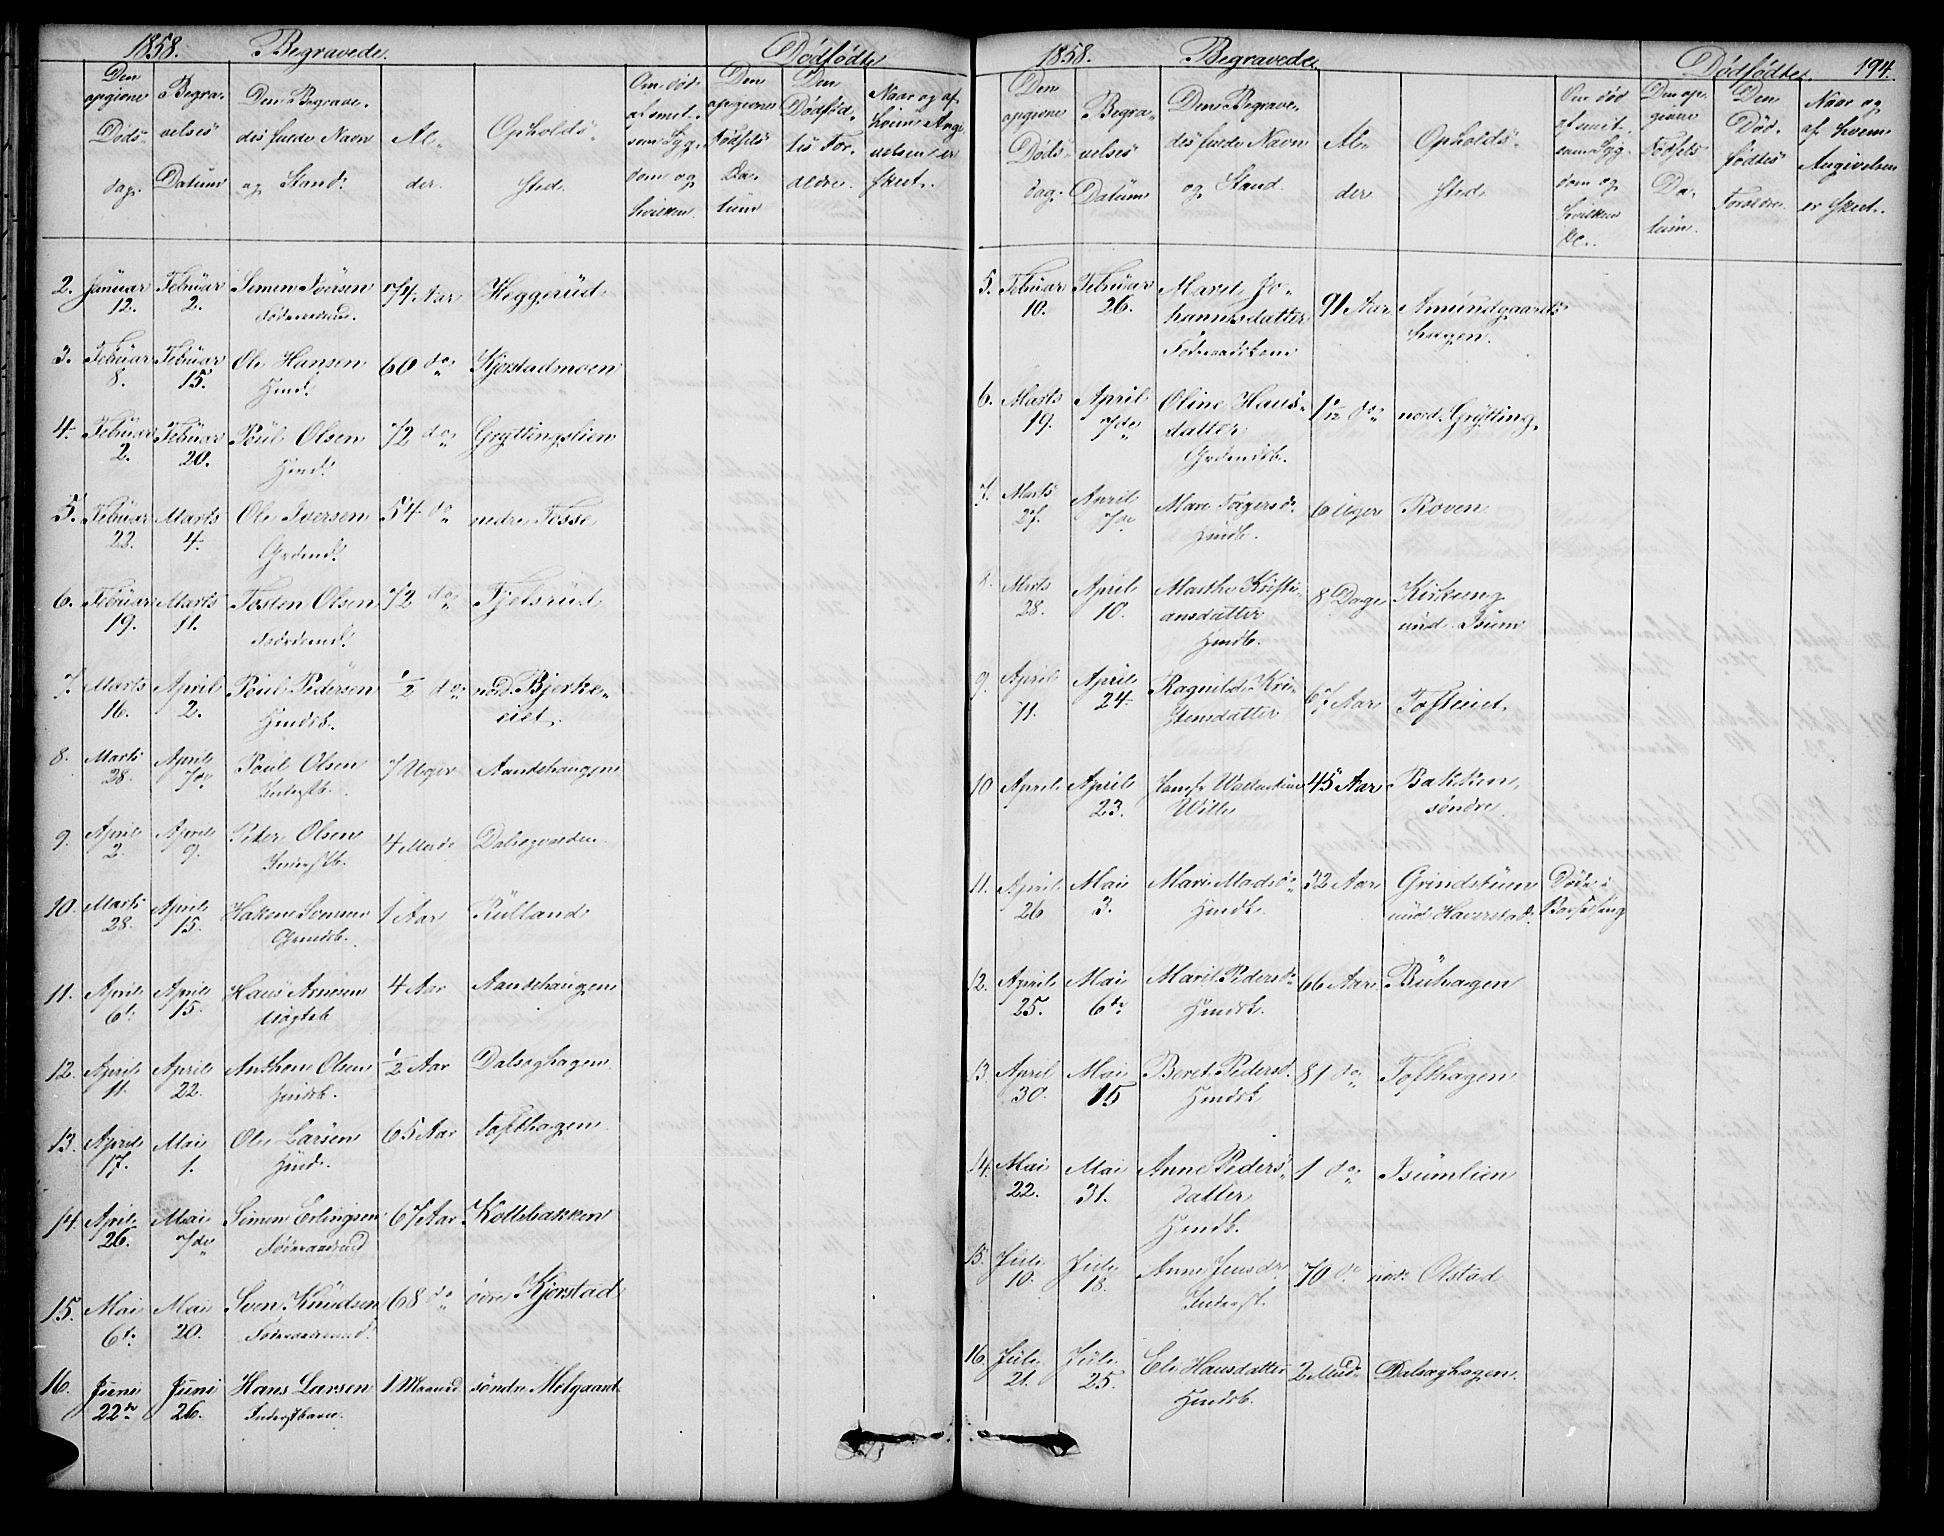 1858. Begravede. Dødfødte
Den opgivne Døds- dag.
Begra- velses Datum
Den Begrave- des fulde Navn og Stand.
Al- der.
Opholds- sted.
Om død af smit- som Syg- dom og hvilken
Den opgivne Fødsels Da- tum
Den Dødfød- tes For- ældre.
Naar og af hvem Angi- velsen er skeet.
2. Januar 12. Februar 2. Simen Iversen 74 Aar Heggerud
3. Februar 8. Februar 15. Ole Hansen Hmd. 60 do Kjorstadmoen
4. Februar 2. Februar 20. Poul Olsen Hmd. 72 do Gryttingslien
5. Februar 22. Marts 4. Ole Iversen Grdmd. 54 do nedre Fosse
6. Februar 19. Marts 11. Tosten Olsen 72 do Fjelsrud
7. Marts 16. April 2. Poul Pedersen Hmdsb. 1/2 do nord. Bjerke- eiet.
8. Marts 28. April 7de Poul Olsen Inderstb. 7 Uger Aandshaugen
9. April 2. April 9. Peder Olsen Inderstb. 4 Mndr Dalseg
10. Marts 28. April 15. Hakon Simensen Grmdsb. 1 Aar Rulland
11. April 6t. April 15. Hans Arnesen Uægteb. 4 Aar Aandshaugen
12. April 11. April 22. Anthon Olsen Hmdsb. 1/2 Aar Dalseghagen
13. April 17. Mai 1. Ole Larsen Hmd. 65 Aar Tofthagen
14. April 26. Mai 7de Simen Erlingsen Føderaadmd 67 Aar Kollebakken
15. Mai 6te Mai 20. Sven Knudsen Føderaadsmand. 68 do øvre Kjorstad
16. Juni 22de Juni 26. Hans Larsen Inderstbarn. 1 Maaned søndre Melgaard
1858. Begravede Dødfødte 194.
Den opgivne Døds- dag.
Begra- velses Datum
Den Begrave- des fulde Navn og Stand.
Al- der
Opholds- sted.
Om død af smit- som Syg- dom og hvilken &c.
Den op- givne Fødsels Da- tum.
Den Død- fødtes Forældre.
Naar og af hvem Angivelsen er skeet.
5. Februar 10. Februar 26. Marit Jo- hannesdatter 91 Aar Amundgaards- hagen.
6. Marts 19. April 7de Oline Hans- datter Grdmdsb. 1/12 do nord. Grytting.
7. Marts 27. April 7de Mari Torgersd. Hmdb. 6 Uger Roven
8. Marts 28. April 10. Marthe Kristi- ansdatter Hmdb. 8 Dage Kirkeng und. Isum
9. April 11. April 24. Ragnilde Kri- stensdatter 67 Aar Tofteiet.
10 April April 23. Jomfr Wallentine Wille 45 Aar Bakken, søndre.
11. April 26 Mai 3. Mari Madsd. Hmdk. 32 Aar Grindstuen und. Haverstad. Døde i Barselseng
12. April 25. Mai 6te Marit Pedersd. Hmdk. 66 Aar Buhagen
13. April 30. Mai 15 Beret Pedersd. Hmdk 81 do Tofthagen
14. Mai 22. Mai 31. Anne Peders- datter Hmdb. 1 do Isumlien
15. Juli 10. Juli 18. Anne Jensdr Inderst. 70 do ned. Olstad
16. Juli 21. Juli 25. Eli Hansdatter Hmdsb. 2 Mnd. Dalseghagen.